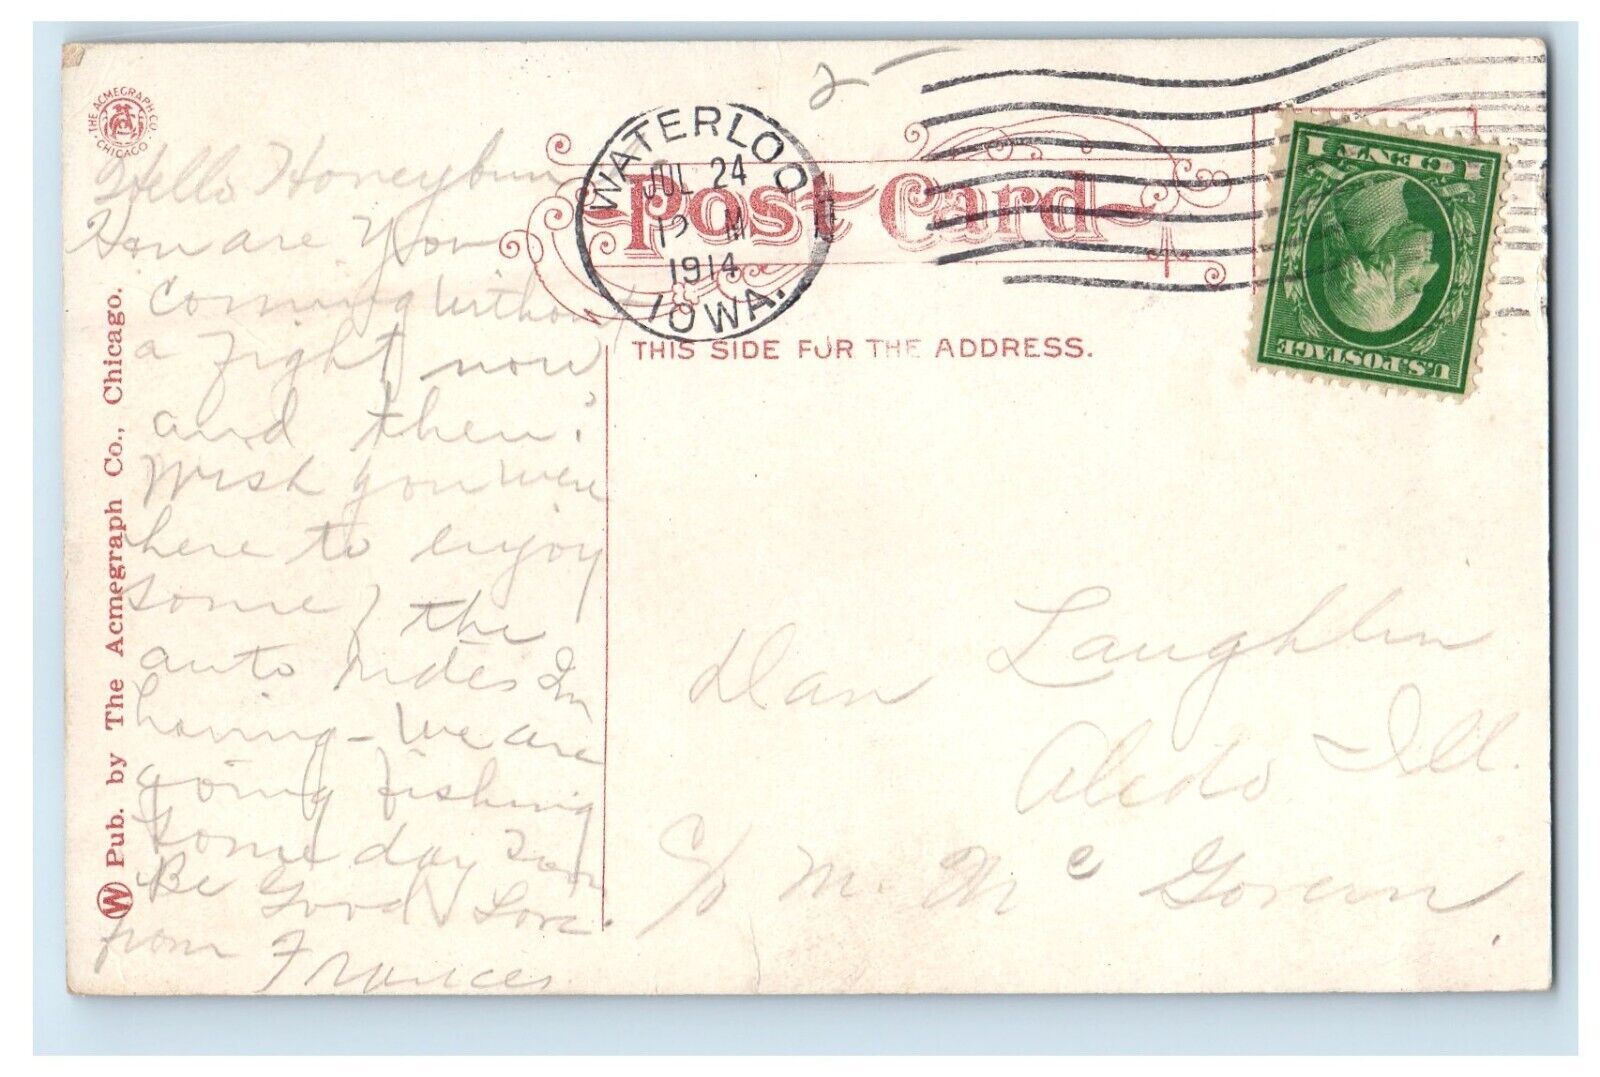 THE ACMEGRAPH CO.
CHICAGO
Hello Honeybun
How are you
coming without
a fight now
and then?
Wish you were
here to enjoy
some / the
auto rides Im
having - We are
going fishing
some day soon
Be Good Love
from Frances
W Pub. by The Acmegraph Co., Chicago.
2 -
WATERLOO
JUL 24
12 M
1914
IOWA.
Post Card
THIS SIDE FOR THE ADDRESS.
1 CENT 1
U.S. POSTAGE
Dan Laughlin
Aledo Ill.
c/o M. Mc Govern